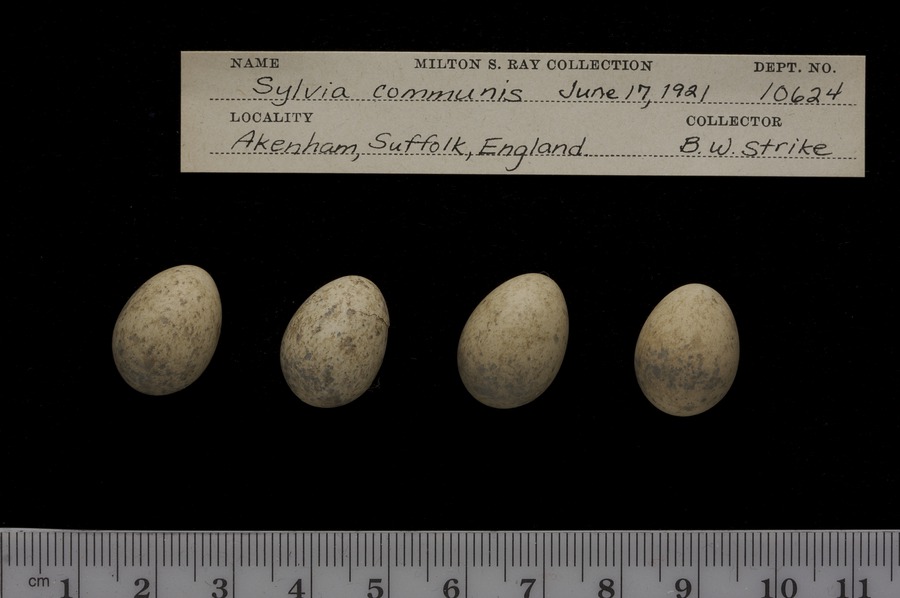 NAME MILTON S. RAY COLLECTION DEPT. NO.
Sylvia communis June 17, 1921 10624
LOCALITY COLLECTOR
Akenham, Suffolk, England B.W. Strike
cm 1 2 3 4 5 6 7 8 9 10 11